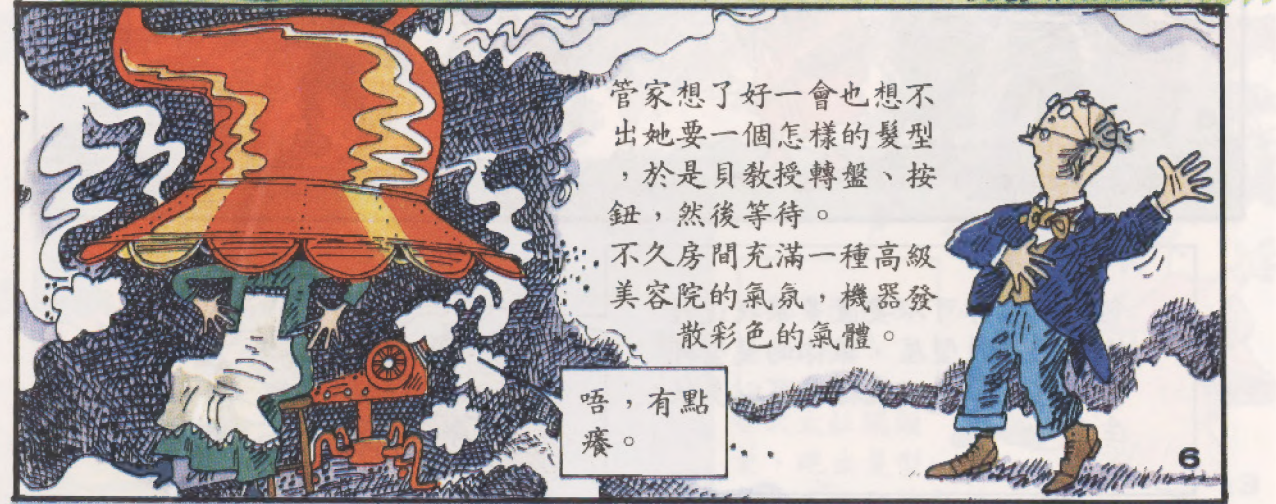 管家想了好一會也想不
出她要一個怎樣的髮型
，於是貝教授轉盤、按
鈕，然後等待。
不久房間充滿一種高級
美容院的氣氛，機器發
散彩色的氣體。
唔，有點
癢。
6